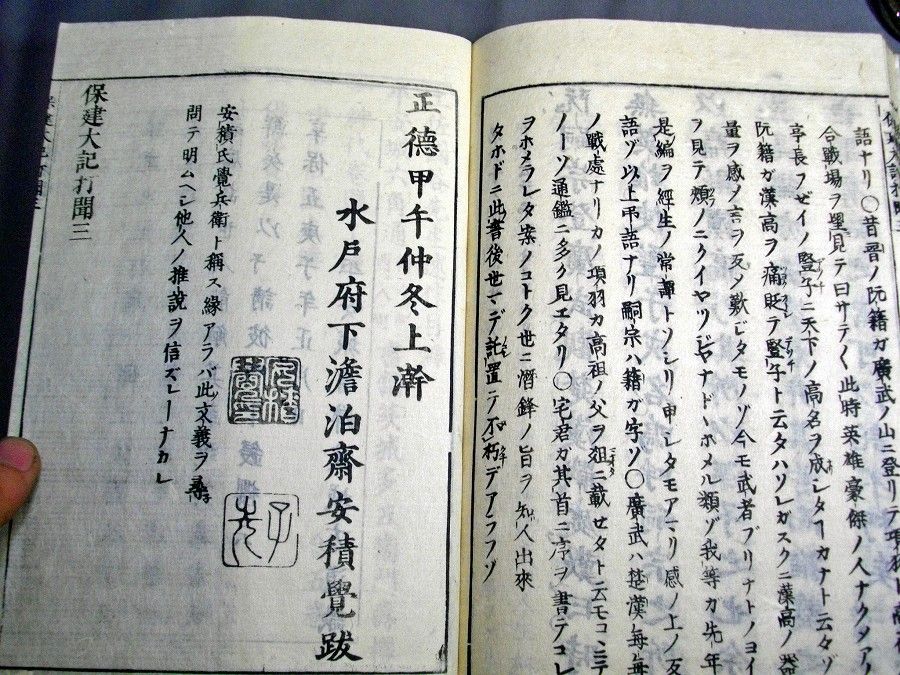 語ナリ〇昔晋ノ阮籍カ廣武ノ山ニ登リテ項
合戰場ヲ望見テ曰サテ〱此時英雄豪傑ノ人ナクメア
亭長フゼイノ豎子ニ天下ノ高名ヲ成シターカナト云々ゾ
阮籍ガ漢高ヲ痛貶テ豎子ト云タハソレガスクニ漢高ノ器
量ヲ感ノ言ヲ反メ歎ビタモノゾ今モ武者ブリナトノヨイ
ヲ見テ頬ノニクイヤツヂヤナドヽホメル類ゾ我等カ先年
是編ヲ經生ノ常譚トソシリ申シタモアマリ感ノ上ノ反
語ゾ以上弔語ナリ嗣宗ハ籍ガ字ソ〇廣武ハ楚漢毎毎
ノ戰處ナリカノ項羽カ高祖ノ父ヲ俎ニ載セタト云モコヽニテ
ノーソ通鑑ニ多ク見エタリ〇宅君ガ其首ニ序ヲ書テコレ
ヲホメラレタ案ノコトク世ニ潛鋒ノ旨ヲ知人出來
タホドニ此書後世マデ託置ニテ不朽デアラフゾ
正德甲午仲冬上澣
水戸府下澹泊齋安積覺跋
安積氏覺兵衛ト稱ス緣アラバ此文義ヲ尋
問テ明ムヘシ他人ノ推說ヲ信ズルーナカレ
子先
保建大記打聞三